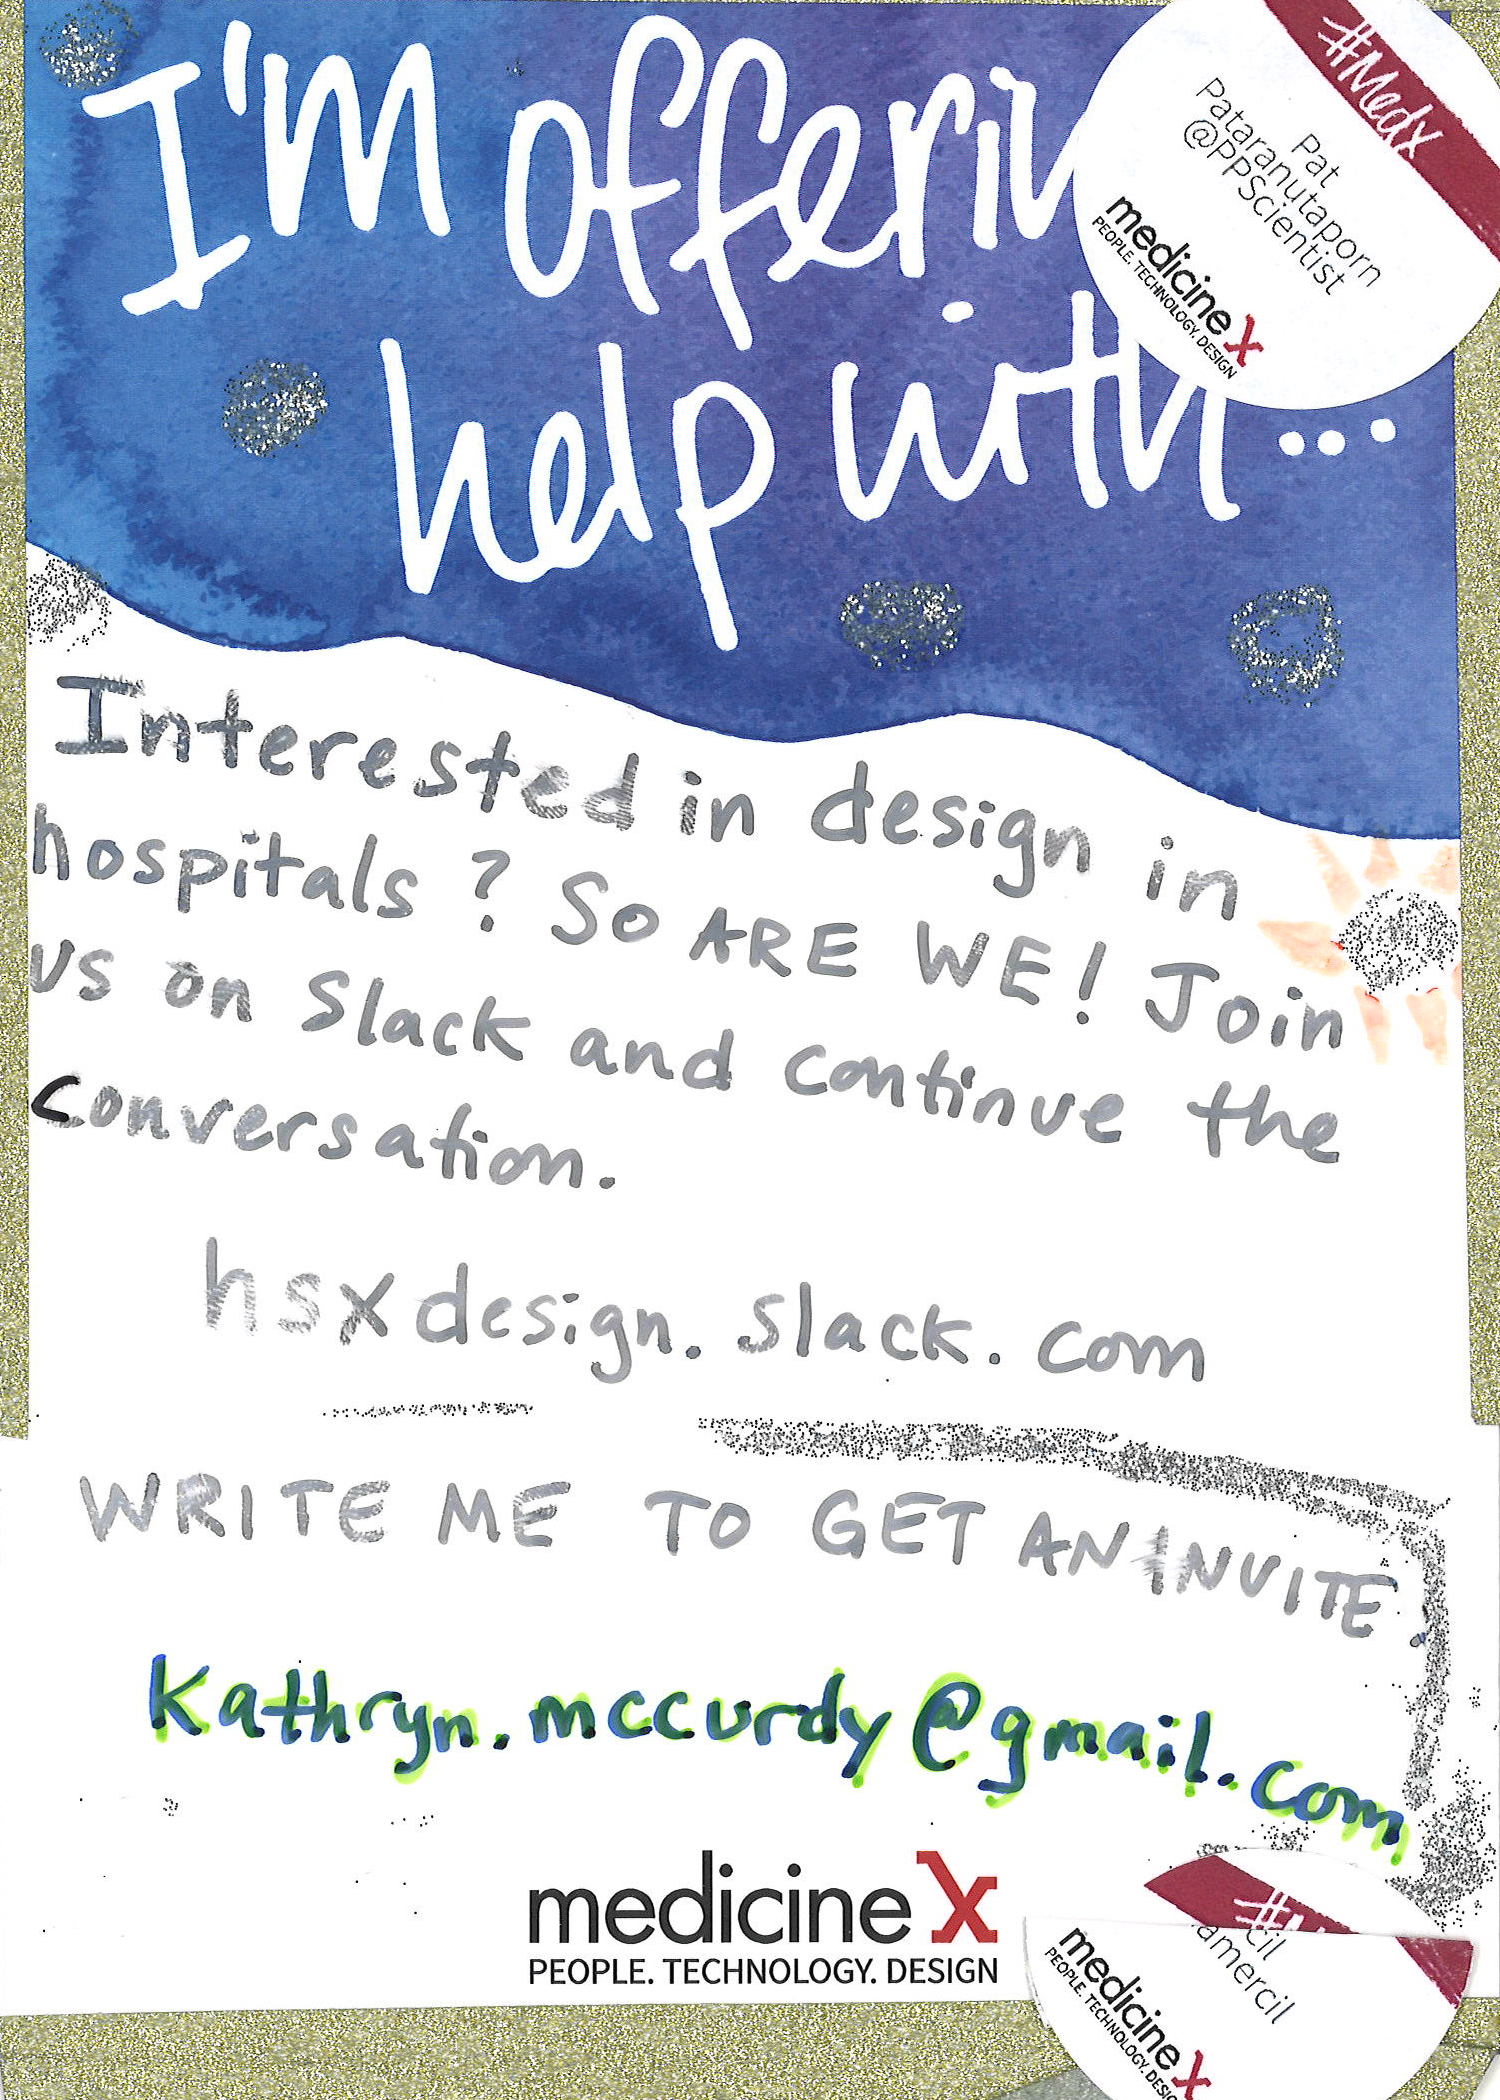 I'm offerin
help with...
#Medx
Pat
Pataranutaporn
@PPScientist
medicine x
PEOPLE. TECHNOLOGY. DESIGN
Interested in design in
hospitals? So ARE WE! Join
us on Slack and continue the
conversation.
hsxdesign.slack.com
WRITE ME TO GET AN INVITE.
kathryn.mccurdy@gmail.com
medicine x
PEOPLE. TECHNOLOGY. DESIGN
cil
amercil
medicine x
PEOPLE. TECHNOLOGY. DESIG